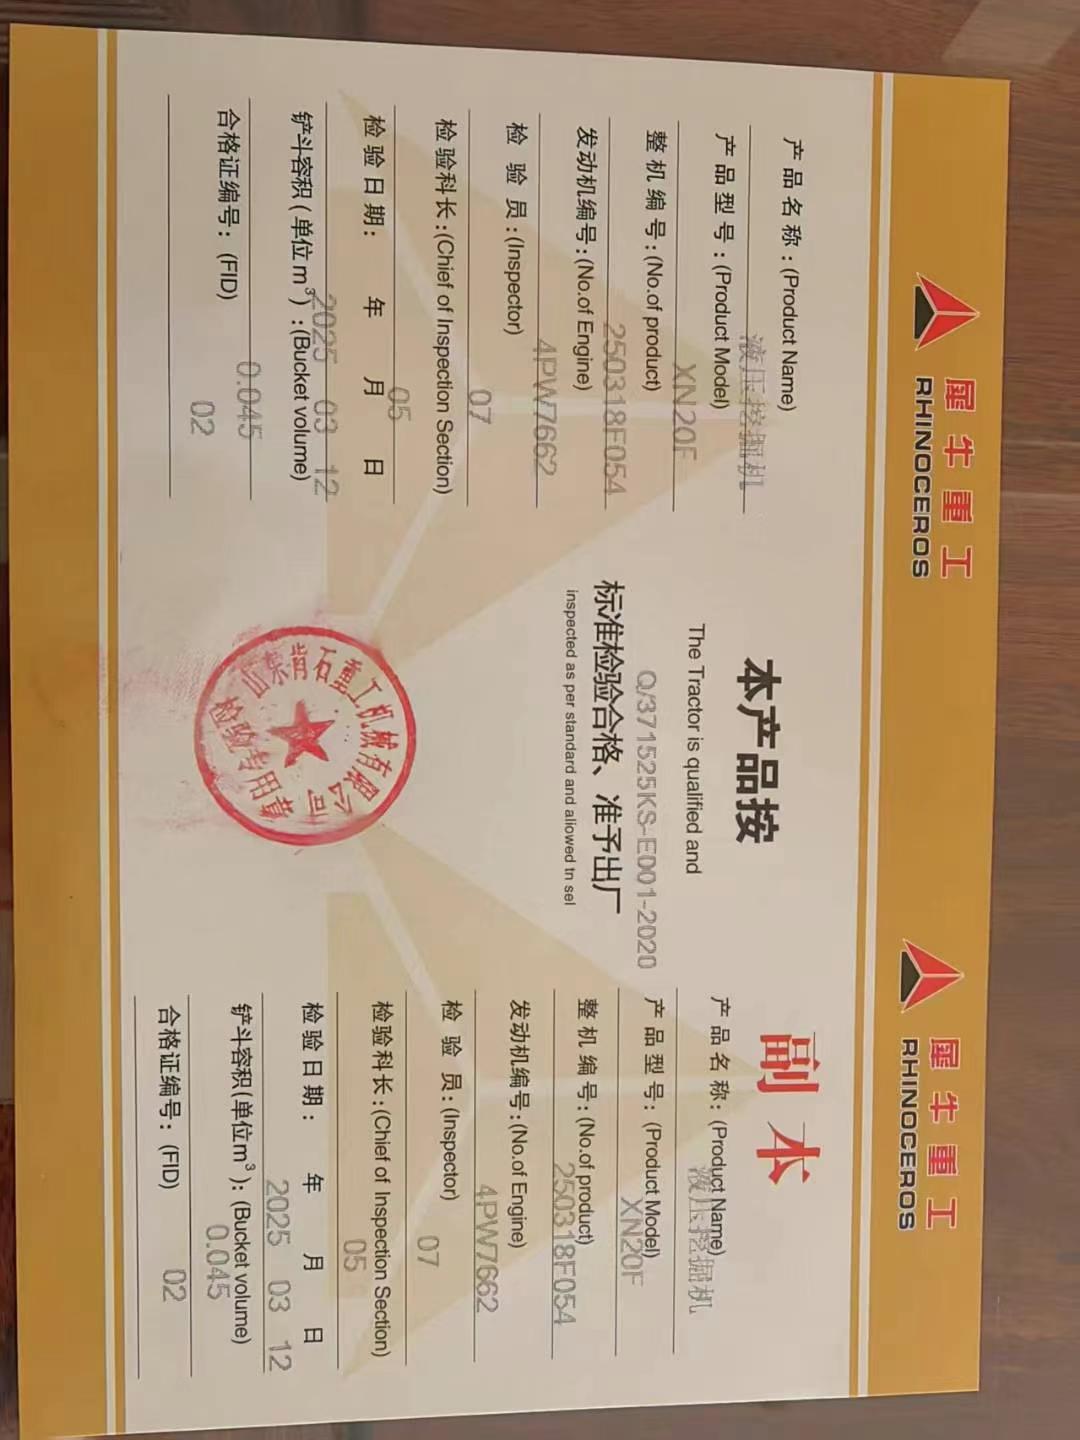 犀牛重工
RHINOCEROS
产品名称：(Product Name)
液压挖掘机
产品型号：(Product Model)
XN20F
整机编号：(No.of product)
250318F054
发动机编号：(No.of Engine)
4PW7662
检 验 员：(Inspector)
07
检验科长：(Chief of Inspection Section)
05
检验日期： 年 月 日
2025 03 12
铲斗容积(单位m³)：(Bucket volume)
0.045
合格证编号：(FID)
02
本产品按
The Tractor is qualified and
Q/371525KS-E001-2020
标准检验合格、准予出厂
inspected as per standard and aliowed tn sel
山东肯石重工机械有限公司
检验专用章
犀牛重工
RHINOCEROS
副本
产品名称：(Product Name)
液压挖掘机
产品型号：(Product Model)
XN20F
整机编号：(No.of product)
250318F054
发动机编号：(No.of Engine)
4PW7662
检 验 员：(Inspector)
07
检验科长：(Chief of Inspection Section)
05
检验日期： 年 月 日
2025 03 12
铲斗容积(单位m³)：(Bucket volume)
0.045
合格证编号：(FID)
02